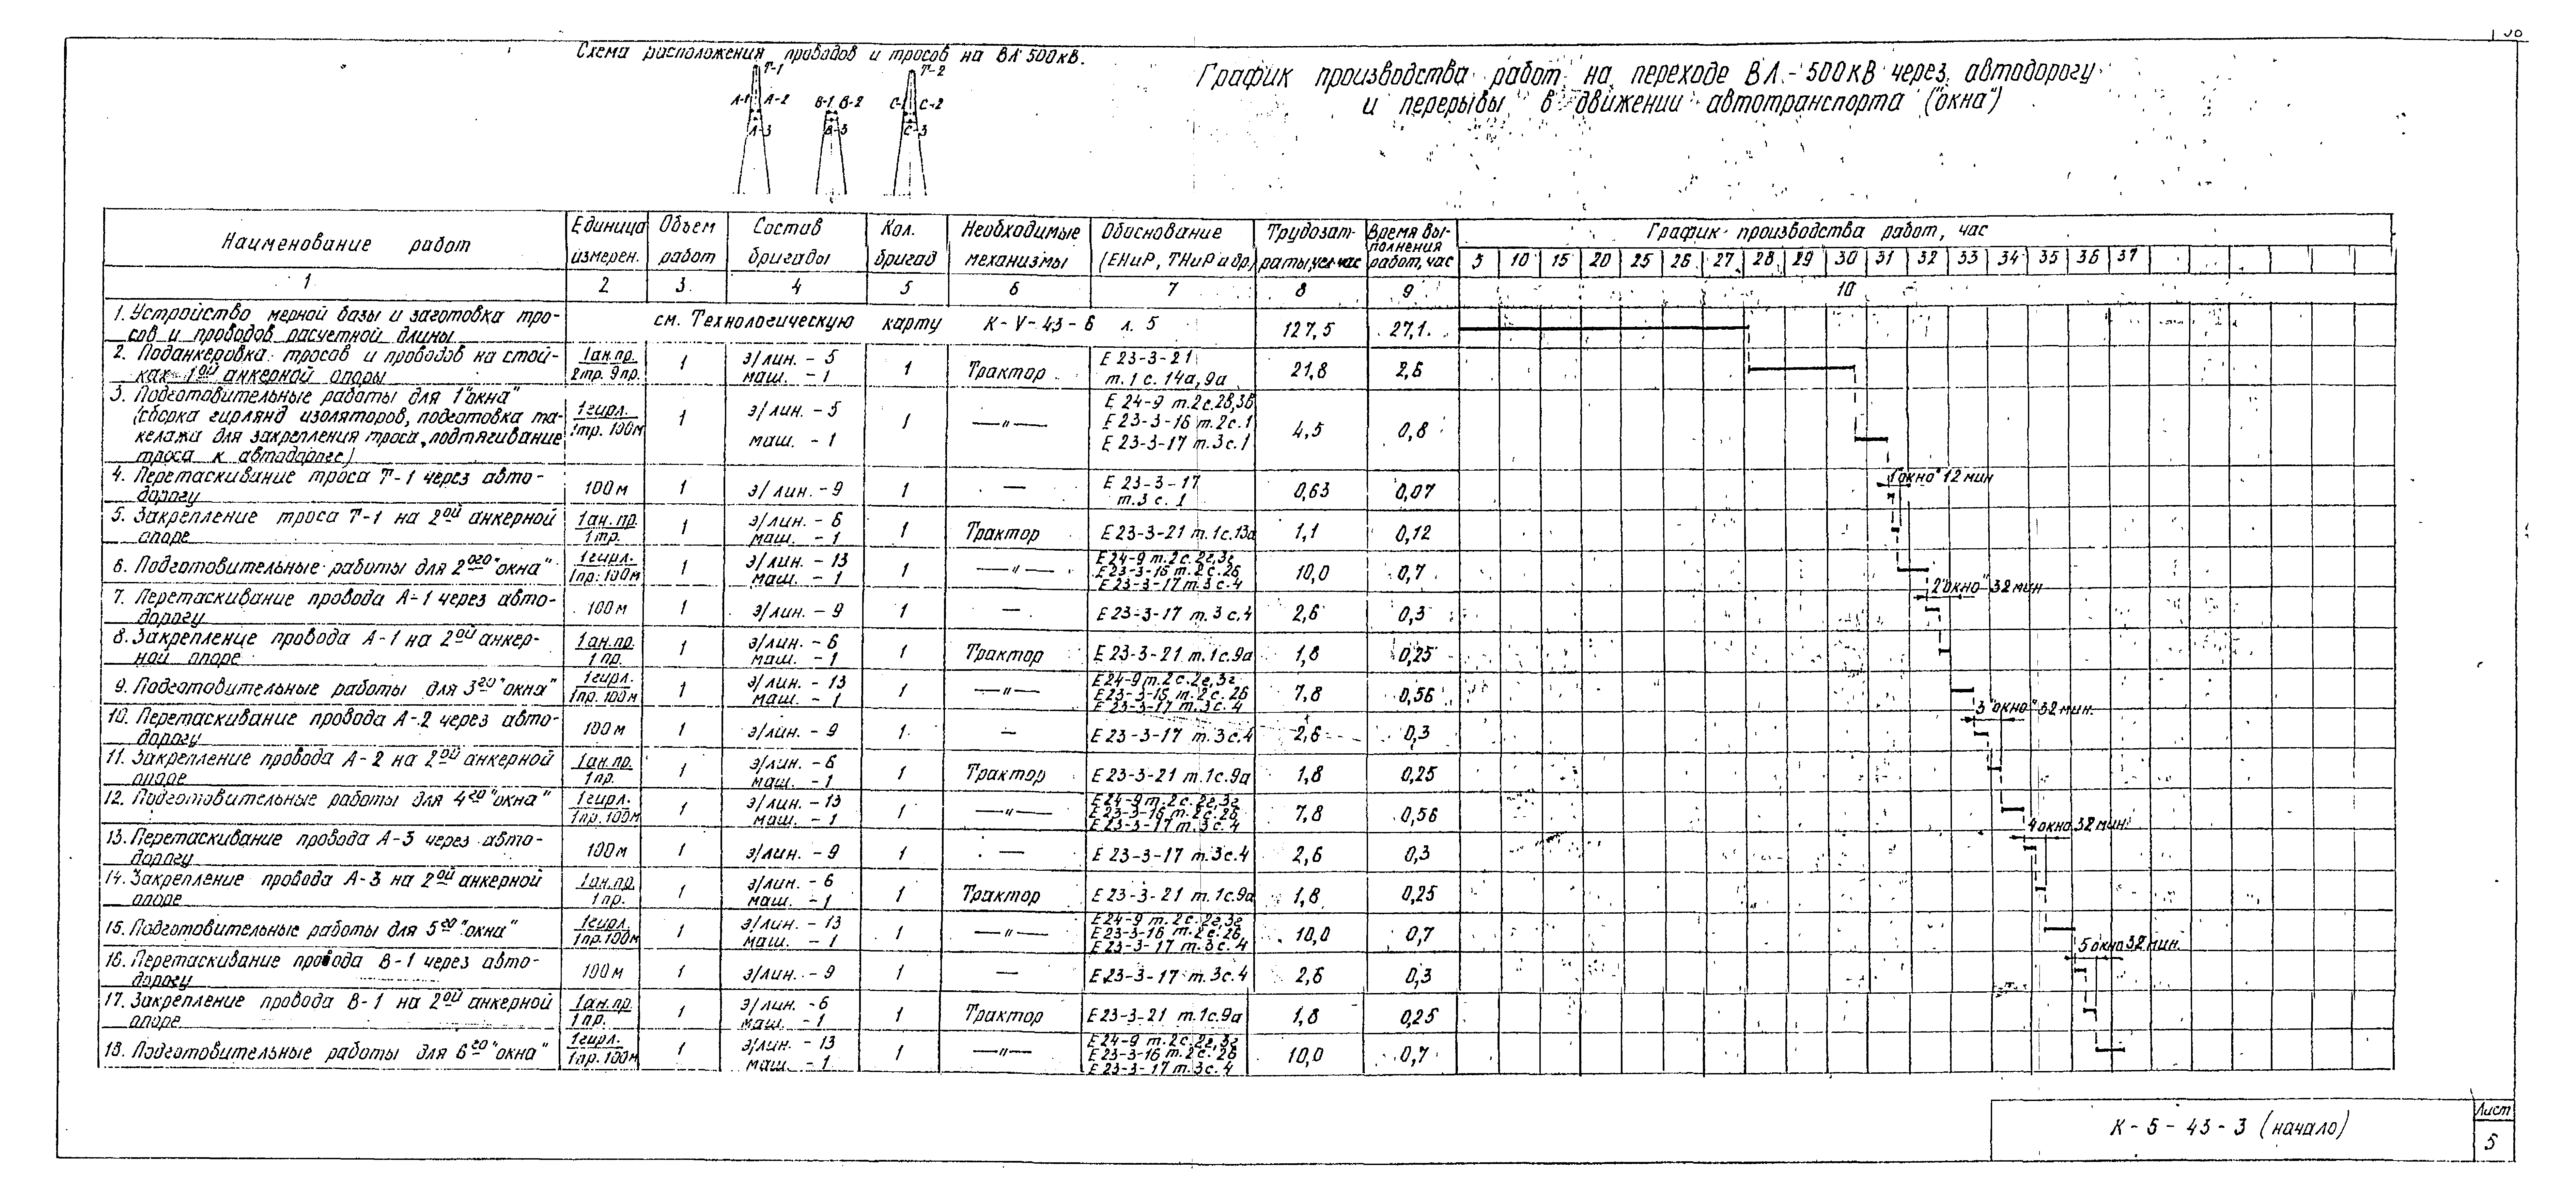 Схема расположения проводов и тросов на ВЛ 500кВ.
Т-1
Т-2
А-1 А-2
В-1 В-2
С-1 С-2
А-3
В-3
С-3
График производства работ на переходе ВЛ-500кВ через автодорогу
и перерывы в движении автотранспорта ("окна")
Наименование работ
Единица измерен.
Объем работ
Состав бригады
Кол. бригад
Необходимые механизмы
Обоснование (ЕНиР, ТНиР и др.)
Трудозатраты, чел-час
Время выполнения работ, час
График производства работ, час
5 10 15 20 25 26 27 28 29 30 31 32 33 34 35 36 37
1 2 3 4 5 6 7 8 9 10
1. Устройство мерной базы и заготовка тро-
сов и проводов расчетной длины
см. Технологическую карту К-V-43-6 л. 5 127,5 27,1
2. Поданкеровка тросов и проводов на стой-
ках 1ой анкерной опоры
1ан.пр.
2тр. 9пр.
1
э/лин. - 5
маш. - 1
1 Трактор
Е 23-3-21
т.1 с. 14а, 9а
21,8 2,6
3. Подготовительные работы для 1"окна"
(сборка гирлянд изоляторов, подготовка та-
келажа для закрепления троса, подтягивание
троса к автодороге)
1гирл.
1тр. 100м
1
э/лин. - 5
маш. - 1
1 —"—
Е 24-9 т.2с.2в,3в
Е 23-3-16 т.2с.1
Е 23-3-17 т.3с.1
4,5 0,8
4. Перетаскивание троса Т-1 через авто-
дорогу
100м 1 э/лин. - 9 1 —
Е 23-3-17
т.3 с. 1
0,63 0,07
1"окно" 12 мин
5. Закрепление троса Т-1 на 2ой анкерной
опоре
1ан.пр.
1тр.
1
э/лин. - 6
маш. - 1
1 Трактор Е 23-3-21 т.1с.13а 1,1 0,12
6. Подготовительные работы для 2ого "окна"
1гирл.
1пр. 100м
1
э/лин. - 13
маш. - 1
1 —"—
Е24-9 т.2с.2г,3г
Е23-3-16 т.2с.2б
Е 23-3-17 т.3с.4
10,0 0,7
7. Перетаскивание провода А-1 через авто-
дорогу
100м 1 э/лин. - 9 1 — Е 23-3-17 т.3с.4 2,6 0,3
2"окно" 32 мин
8. Закрепление провода А-1 на 2ой анкер-
ной опоре
1ан.пр.
1пр.
1
э/лин. - 6
маш. - 1
1 Трактор Е 23-3-21 т.1с.9а 1,8 0,25
9. Подготовительные работы для 3го "окна"
1гирл.
1пр. 100м
1
э/лин. - 13
маш. - 1
1 —"—
Е24-9 т.2с.2г,3г
Е23-3-16 т.2с.2б
Е 23-3-17 т.3с.4
7,8 0,56
10. Перетаскивание провода А-2 через авто-
дорогу
100м 1 э/лин. - 9 1 — Е 23-3-17 т.3с.4 2,6 0,3
3"окно" 32 мин.
11. Закрепление провода А-2 на 2ой анкерной
опоре
1ан.пр.
1пр.
1
э/лин. - 6
маш. - 1
1 Трактор Е 23-3-21 т.1с.9а 1,8 0,25
12. Подготовительные работы для 4го "окна"
1гирл.
1пр. 100м
1
э/лин. - 13
маш. - 1
1 —"—
Е24-9 т.2с.2г,3г
Е23-3-16 т.2с.2б
Е 23-3-17 т.3с.4
7,8 0,56
13. Перетаскивание провода А-3 через авто-
дорогу
100м 1 э/лин. - 9 1 — Е 23-3-17 т.3с.4 2,6 0,3
4 окно 32 мин.
14. Закрепление провода А-3 на 2ой анкерной
опоре
1ан.пр.
1пр.
1
э/лин. - 6
маш. - 1
1 Трактор Е 23-3-21 т.1с.9а 1,8 0,25
15. Подготовительные работы для 5го "окна"
1гирл.
1пр. 100м
1
э/лин. - 13
маш. - 1
1 —"—
Е24-9 т.2с.2г,3г
Е23-3-16 т.2с.2б
Е 23-3-17 т.3с.4
10,0 0,7
16. Перетаскивание провода В-1 через авто-
дорогу
100м 1 э/лин. - 9 1 — Е 23-3-17 т.3с.4 2,6 0,3
5 окно 32 мин.
17. Закрепление провода В-1 на 2ой анкерной
опоре
1ан.пр.
1пр.
1
э/лин. - 6
маш. - 1
1 Трактор Е 23-3-21 т.1с.9а 1,8 0,25
18. Подготовительные работы для 6го "окна"
1гирл.
1пр. 100м
1
э/лин. - 13
маш. - 1
1 —"—
Е24-9 т.2с.2г,3г
Е 23-3-16 т.2с.2б
Е 23-3-17 т.3с.4
10,0 0,7
К-5-43-3 (начало)
Лист
5